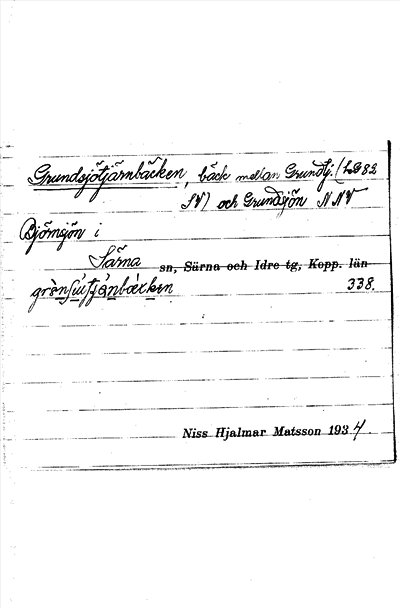 Grundsjötjärnbäcken, bäck mellan Grundtj. (LG 82
SV) och Grundsjön NNV
Björnsjön i
Särna sn, Särna och Idre tg, Kopp. län
338.
Niss Hjalmar Matsson 1934.